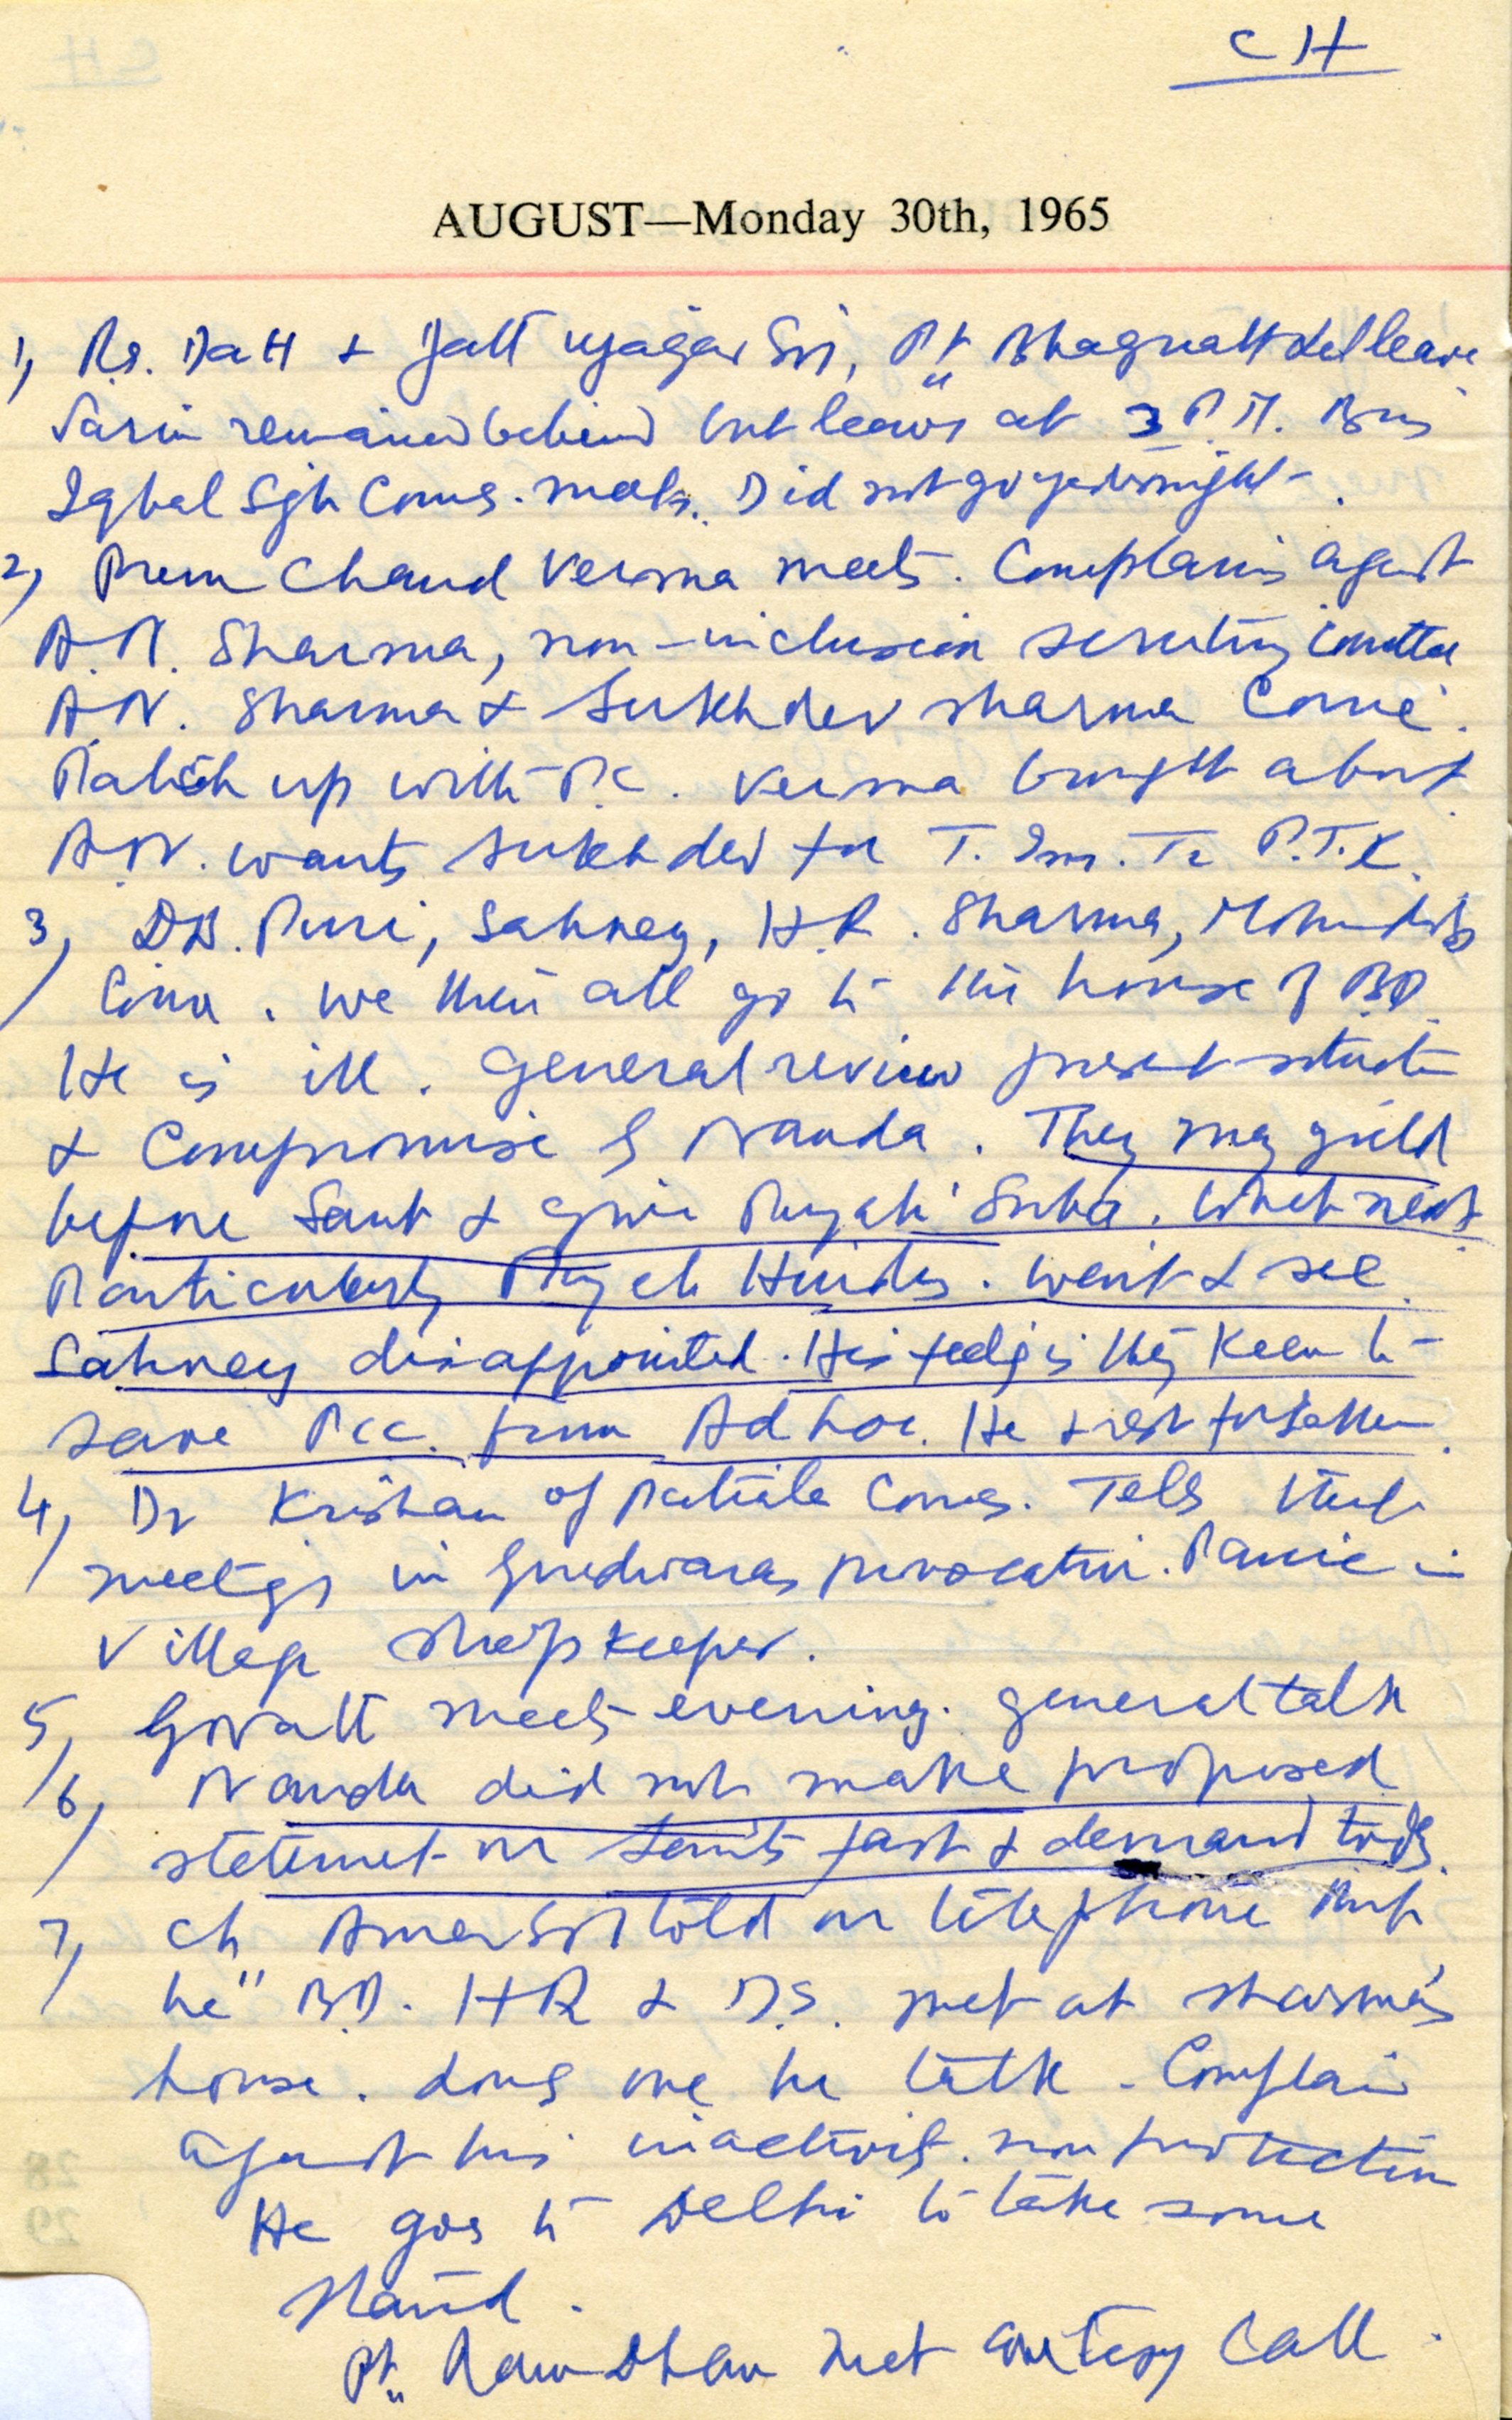 CH
AUGUST—Monday 30th, 1965
1, R.S. Datt & Jatt Ujagar Sin, Pt Bhagwatt leave
Sarin remained behind but leaves at 3 P.M. Brij
Iqbal Sgh Comes. meets. Did not go yesternight.
2, Prem Chand Verma meets. Complains against
A.N. Sharma, non-inclusion scrutiny Comttee
A.N. Sharma & Sukhdev Sharma Come.
Patch up with P.C. Verma brought about
A.N. wants Sukhdev for T. Im. Tr P.T.K.
3, D.D. Puri, Sahney, H.R. Sharma,
Come. We then all go to the house of B.D.
He is ill. General review present situatn
& Compromise by Nanda. They may yield
before Sant & give Punjabi Suba. What next
Particularly Punjab Hindus. Wait & see.
Sahney disappointed. His feelg is they Keen to
save P.C.C. from Ad hoc. He & rest forsaken.
4, Dr Krishan of Patiala Comes. Tells
meetgs in Gurdwaras provocative. Panic in
Village shopkeeper.
5, Govatt meets evening. general talk
6, Nanda did not make proposed
statemet on Sant's fast & demand today.
7, Ch Amar Sin told on telephone that
he" B.D. H.R & D.S. met at Sharma's
house. Long one hr talk. Complain
against his inactivity. non protection
He goes to Delhi to take some
stand.
Pt. Ram Dhan met Courtesy Call.